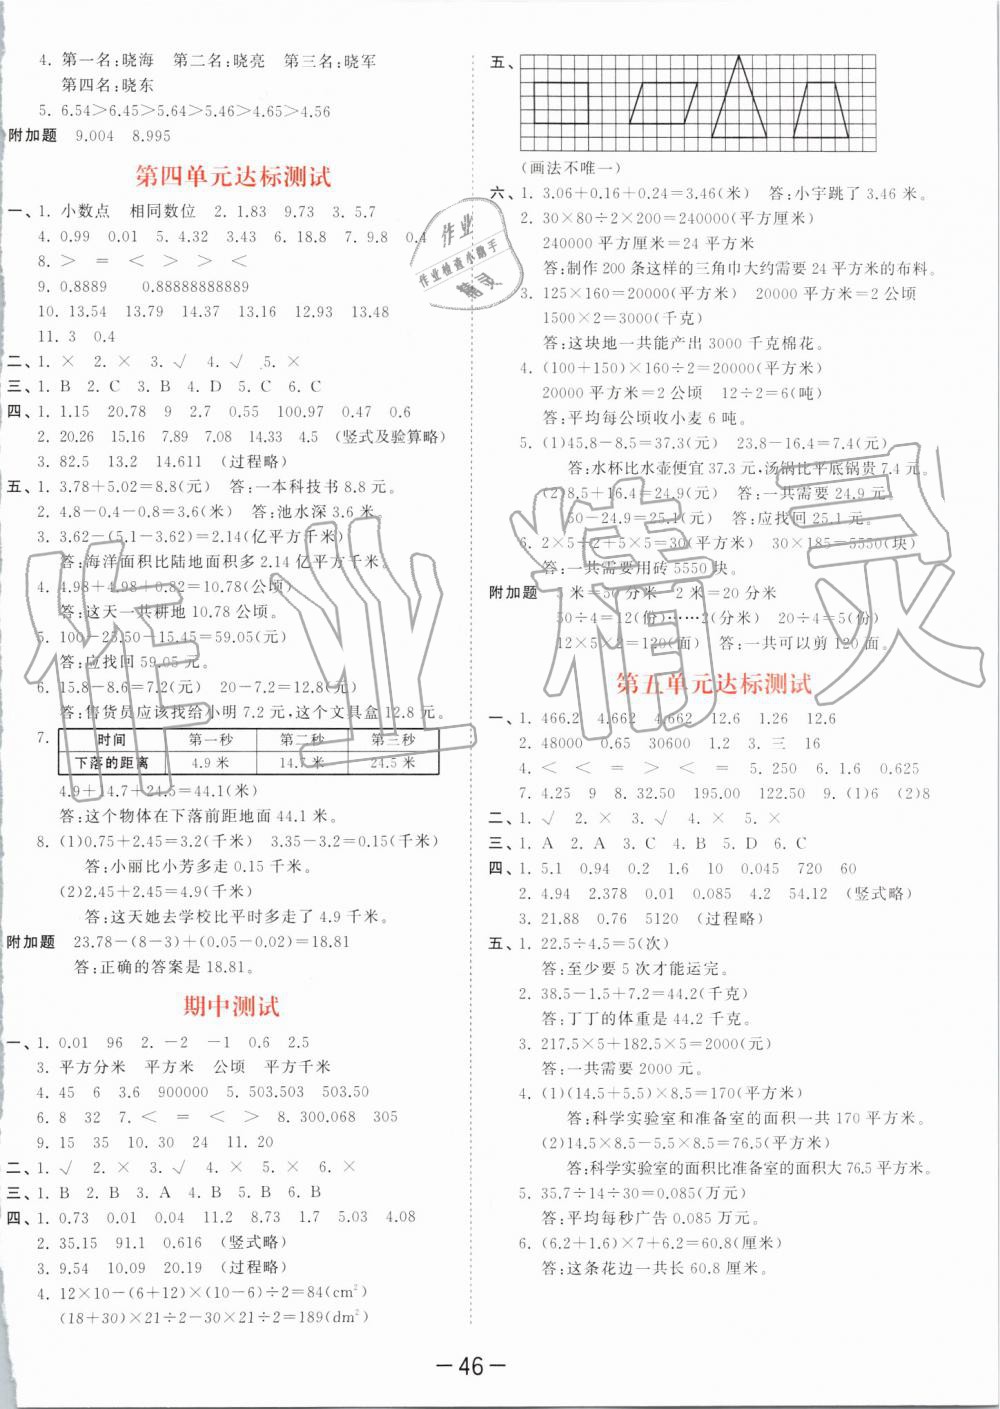 4. 第一名:晓海 第二名:晓亮 第三名:晓军
第四名:晓东
5. 6.54＞6.45＞5.64＞5.46＞4.65＞4.56
附加题 9.004 8.995
第四单元达标测试
一、1. 小数点 相同数位 2. 1.83 9.73 3. 5.7
4. 0.99 0.01 5. 4.32 3.43 6. 18.8 7. 9.8 0.4
8. ＞ ＝ ＜ ＞ ＞ ＜
9. 0.8889 0.88888888889
10. 13.54 13.79 14.37 13.16 12.93 13.48
11. 3 0.4
二、1. × 2. × 3. √ 4. √ 5. ×
三、1. B 2. C 3. B 4. D 5. C 6. C
四、1. 1.15 20.78 9 2.7 0.55 100.97 0.47 0.6
2. 20.26 15.16 7.89 7.08 14.33 4.5 (竖式及验算略)
3. 82.5 13.2 14.611 (过程略)
五、1. 3.78＋5.02＝8.8(元) 答:一本科技书 8.8 元。
2. 4.8－0.4－0.8＝3.6(米) 答:池水深 3.6 米。
3. 3.62－(5.1－3.62)＝2.14(亿平方千米)
答:海洋面积比陆地面积多 2.14 亿平方千米。
4. 4.98＋4.98＋0.82＝10.78(公顷)
答:这天一共耕地 10.78 公顷。
5. 100－25.50－15.45＝59.05(元)
答:应找回 59.05 元。
6. 15.8－8.6＝7.2(元) 20－7.2＝12.8(元)
答:售货员应该找给小明 7.2 元,这个文具盒 12.8 元。
7. 时间 第一秒 第二秒 第三秒
下落的距离 4.9 米 14.7 米 24.5 米
4.9＋14.7＋24.5＝44.1(米)
答:这个物体在下落前距地面 44.1 米。
8. (1)0.75＋2.45＝3.2(千米) 3.35－3.2＝0.15(千米)
答:小丽比小芳多走 0.15 千米。
(2)2.45＋2.45＝4.9(千米)
答:这天她去学校比平时多走了 4.9 千米。
附加题 23.78－(8－3)＋(0.05－0.02)＝18.81
答:正确的答案是 18.81。
期中测试
一、1. 0.01 96 2. －2 －1 0.6 2.5
3. 平方分米 平方米 公顷 平方千米
4. 45 6 3.6 900000 5. 503.503 503.50
6. 8 32 7. ＜ ＝ ＜ ＞ 8. 300.068 305
9. 15 35 10. 30 24 11. 20
二、1. √ 2. × 3. × 4. × 5. × 6. ×
三、1. B 2. B 3. A 4. B 5. B 6. B
四、1. 0.73 0.01 0.04 11.2 8.73 1.7 5.03 4.08
2. 35.15 91.1 0.616 (竖式略)
3. 9.54 10.09 20.19 (过程略)
4. 12×10－(6＋12)×(10－6)÷2＝84(cm²)
(18＋30)×21÷2－30×21÷2＝189(dm²)
五、
(画法不唯一)
六、1. 3.06＋0.16＋0.24＝3.46(米) 答:小宇跳了 3.46 米。
2. 30×80÷2×200＝240000(平方厘米)
240000 平方厘米＝24 平方米
答:制作 200 条这样的三角巾大约需要 24 平方米的布料。
3. 125×160＝20000(平方米) 20000 平方米＝2 公顷
1500×2＝3000(千克)
答:这块地一共能产出 3000 千克棉花。
4. (100＋150)×160÷2＝20000(平方米)
20000 平方米＝2 公顷 12÷2＝6(吨)
答:平均每公顷收小麦 6 吨。
5. (1)45.8－8.5＝37.3(元) 23.8－16.4＝7.4(元)
答:水杯比水壶便宜 37.3 元,汤锅比平底锅贵 7.4 元。
(2)8.5＋16.4＝24.9(元) 答:一共需要 24.9 元。
50－24.9＝25.1(元) 答:应找回 25.1 元。
6. 2×5÷2＋5×5＝30(平方米) 30×185＝5550(块)
答:一共需要用砖 5550 块。
附加题 米＝50 分米 2 米＝20 分米
50÷4＝12(份)……2(分米) 20÷4＝5(份)
12×5×2＝120(面) 答:一共可以剪 120 面。
第五单元达标测试
一、1. 466.2 4.662 4.662 12.6 1.26 12.6
2. 48000 0.65 30600 1.2 3. 三 16
4. ＜ ＜ ＝ ＞ ＜ ＝ 5. 250 6. 1.6 0.625
7. 4.25 9 8. 32.50 195.00 122.50 9. (1)6 (2)8
二、1. √ 2. × 3. √ 4. × 5. ×
三、1. A 2. A 3. C 4. B 5. D 6. C
四、1. 5.1 0.94 0.2 1.6 10 0.045 720 60
2. 4.94 2.378 0.01 0.085 4.2 54.12 (竖式略)
3. 21.88 0.76 5120 (过程略)
五、1. 22.5÷4.5＝5(次)
答:至少要 5 次才能运完。
2. 38.5－1.5＋7.2＝44.2(千克)
答:丁丁的体重是 44.2 千克。
3. 217.5×5＋182.5×5＝2000(元)
答:一共需要 2000 元。
4. (1)(14.5＋5.5)×8.5＝170(平方米)
答:科学实验室和准备室的面积一共 170 平方米。
(2)14.5×8.5－5.5×8.5＝76.5(平方米)
答:科学实验室的面积比准备室的面积大 76.5 平方米。
5. 35.7÷14÷30＝0.085(万元)
答:平均每秒广告 0.085 万元。
6. (6.2＋1.6)×7＋6.2＝60.8(厘米)
答:这条花边一共长 60.8 厘米。
－46－
作业
作业检查小助手
精灵
作业精灵